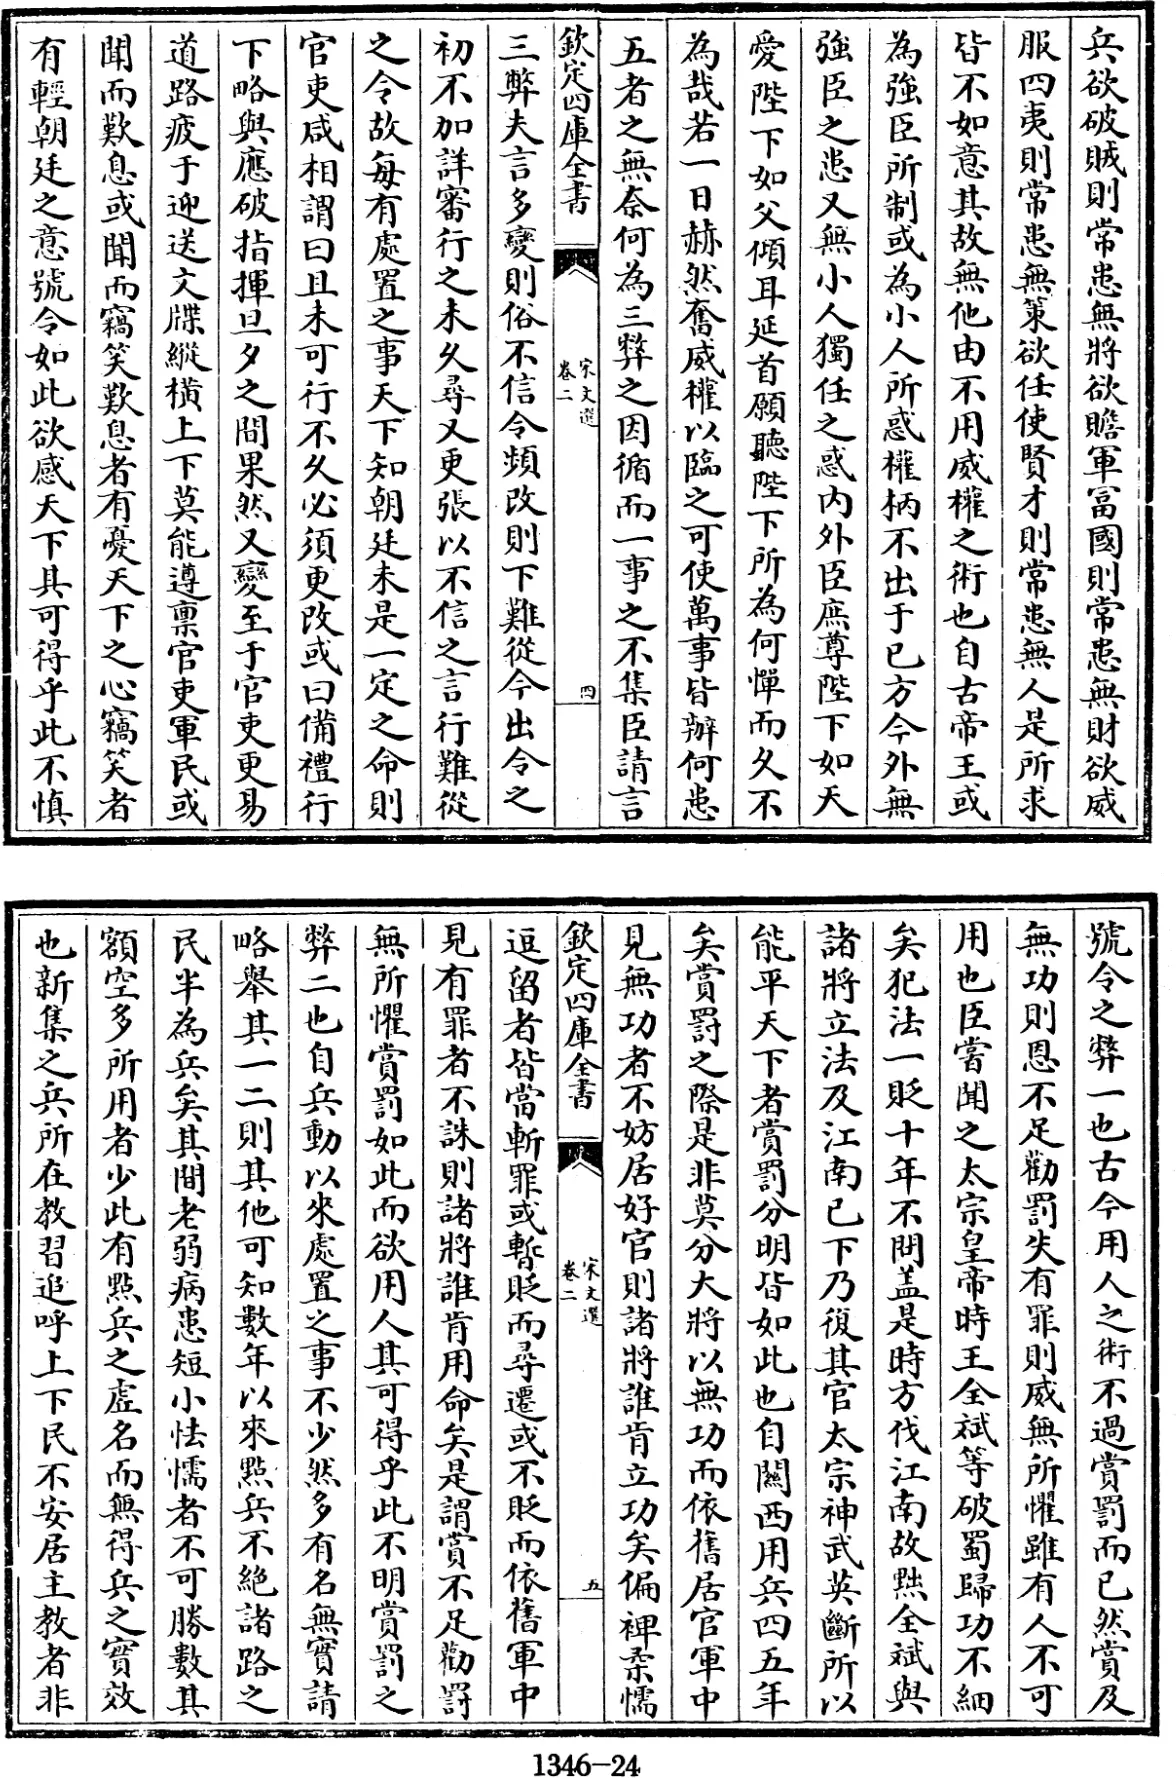 兵欲破賊則常患無將欲贍軍富國則常患無財欲威
服四夷則常患無策欲任使賢才則常患無人是所求
皆不如意其故無他由不用威權之術也自古帝王或
為強臣所制或為小人所惑權柄不出于已方今外無
強臣之患又無小人獨任之惑内外臣庶尊陛下如天
愛陛下如父傾耳延首願聽陛下所為何憚而久不
為哉若一日赫然奮威權以臨之可使萬事皆辦何患
五者之無奈何為三弊之因循而一事之不集臣請言
欽定四庫全書
宋文選
卷二
四
三弊夫言多變則俗不信令頻改則下難從今出令之
初不加詳審行之未久尋又更張以不信之言行難從
之令故每有處置之事天下知朝廷未是一定之命則
官吏咸相謂曰且未可行不久必須更改或曰備禮行
下略與應破指揮旦夕之間果然又變至于官吏更易
道路疲于迎送文牒縱橫上下莫能遵稟官吏軍民或
聞而歎息或聞而竊笑歎息者有憂天下之心竊笑者
有輕朝廷之意號令如此欲感天下其可得乎此不慎
號令之弊一也古今用人之術不過賞罰而已然賞及
無功則恩不足勸罰失有罪則威無所懼雖有人不可
用也臣嘗聞之太宗皇帝時王全斌等破蜀歸功不細
矣犯法一貶十年不問蓋是時方伐江南故黜全斌與
諸將立法及江南已下乃復其官太宗神武英斷所以
能平天下者賞罰分明皆如此也自關西用兵四五年
矣賞罰之際是非莫分大將以無功而依舊居官軍中
見無功者不妨居好官則諸將誰肯立功矣偏裨柔懦
欽定四庫全書
宋文選
卷二
五
逗留者皆當斬罪或暫貶而尋遷或不貶而依舊軍中
見有罪者不誅則諸將誰肯用命矣是謂賞不足勸罰
無所懼賞罰如此而欲用人其可得乎此不明賞罰之
弊二也自兵動以來處置之事不少然多有名無實請
略舉其一二則其他可知數年以來點兵不絶諸路之
民半為兵矣其間老弱病患短小怯懦者不可勝數其
額空多所用者少此有點兵之虛名而無得兵之實效
也新集之兵所在教習追呼上下民不安居主教者非
1346-24